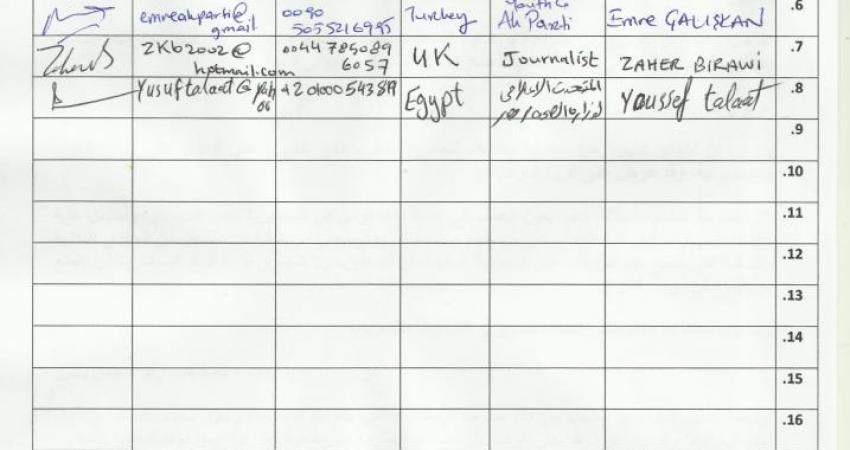 .6
Emre GALISKAN
Ak Parti
Turkey
0090
5055216995
emreakparti@
gmail
.7
ZAHER BIRAWI
Journalist
UK
0044 785089
6057
ZKb2002@
hotmail.com
.8
Youssef talaat
المتحدث الإعلامي
Egypt
Yusuftalaat@
.9
.10
.11
.12
.13
.14
.15
.16